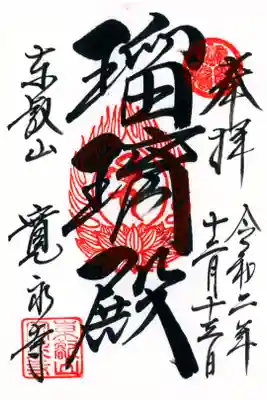 奉拝
令和二年
十二月十三日
瑠璃殿
東叡山
寛永寺